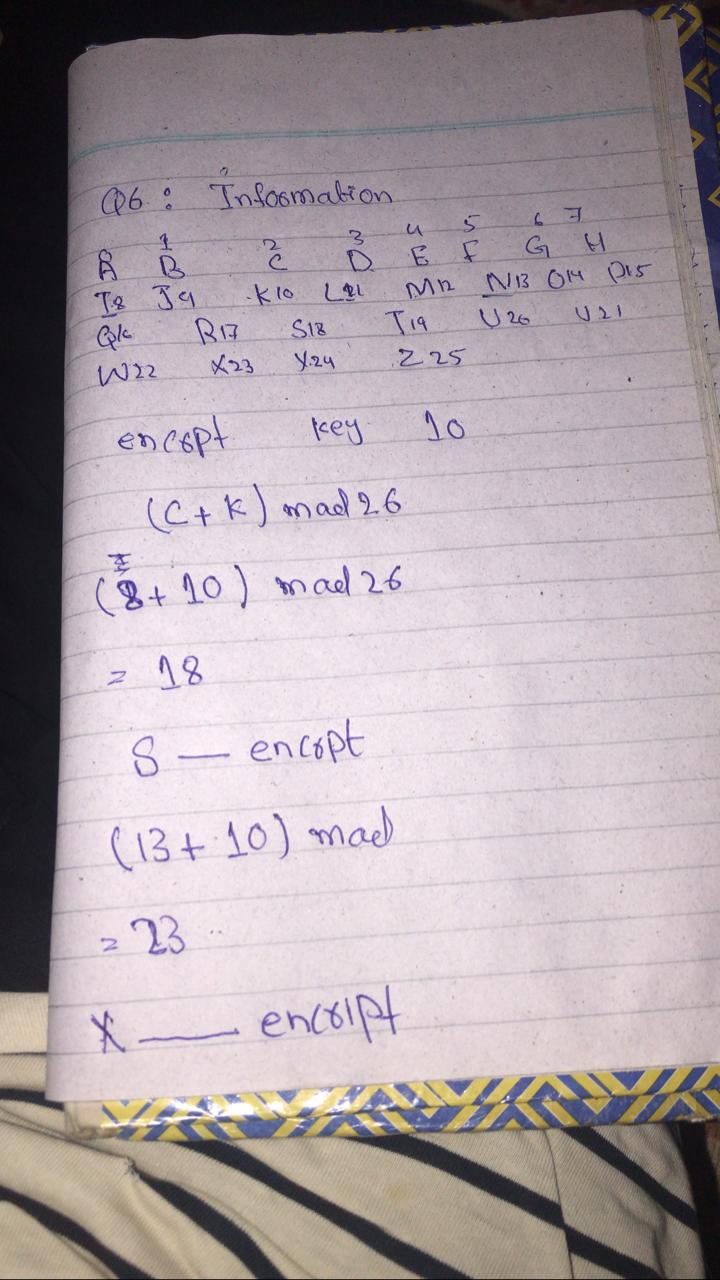 Q6 : Information
0 1 2 3 4 5 6 7
A B C D E F G H
I8 J9 K10 L11 M12 N13 O14 P15
Q16 R17 S18 T19 U20 V21
W22 X23 Y24 Z25
encrpt key 10
(C + K) mad 26
I
(8 + 10) mad 26
= 18
S — encrpt
(13 + 10) mad
= 23
X — encript